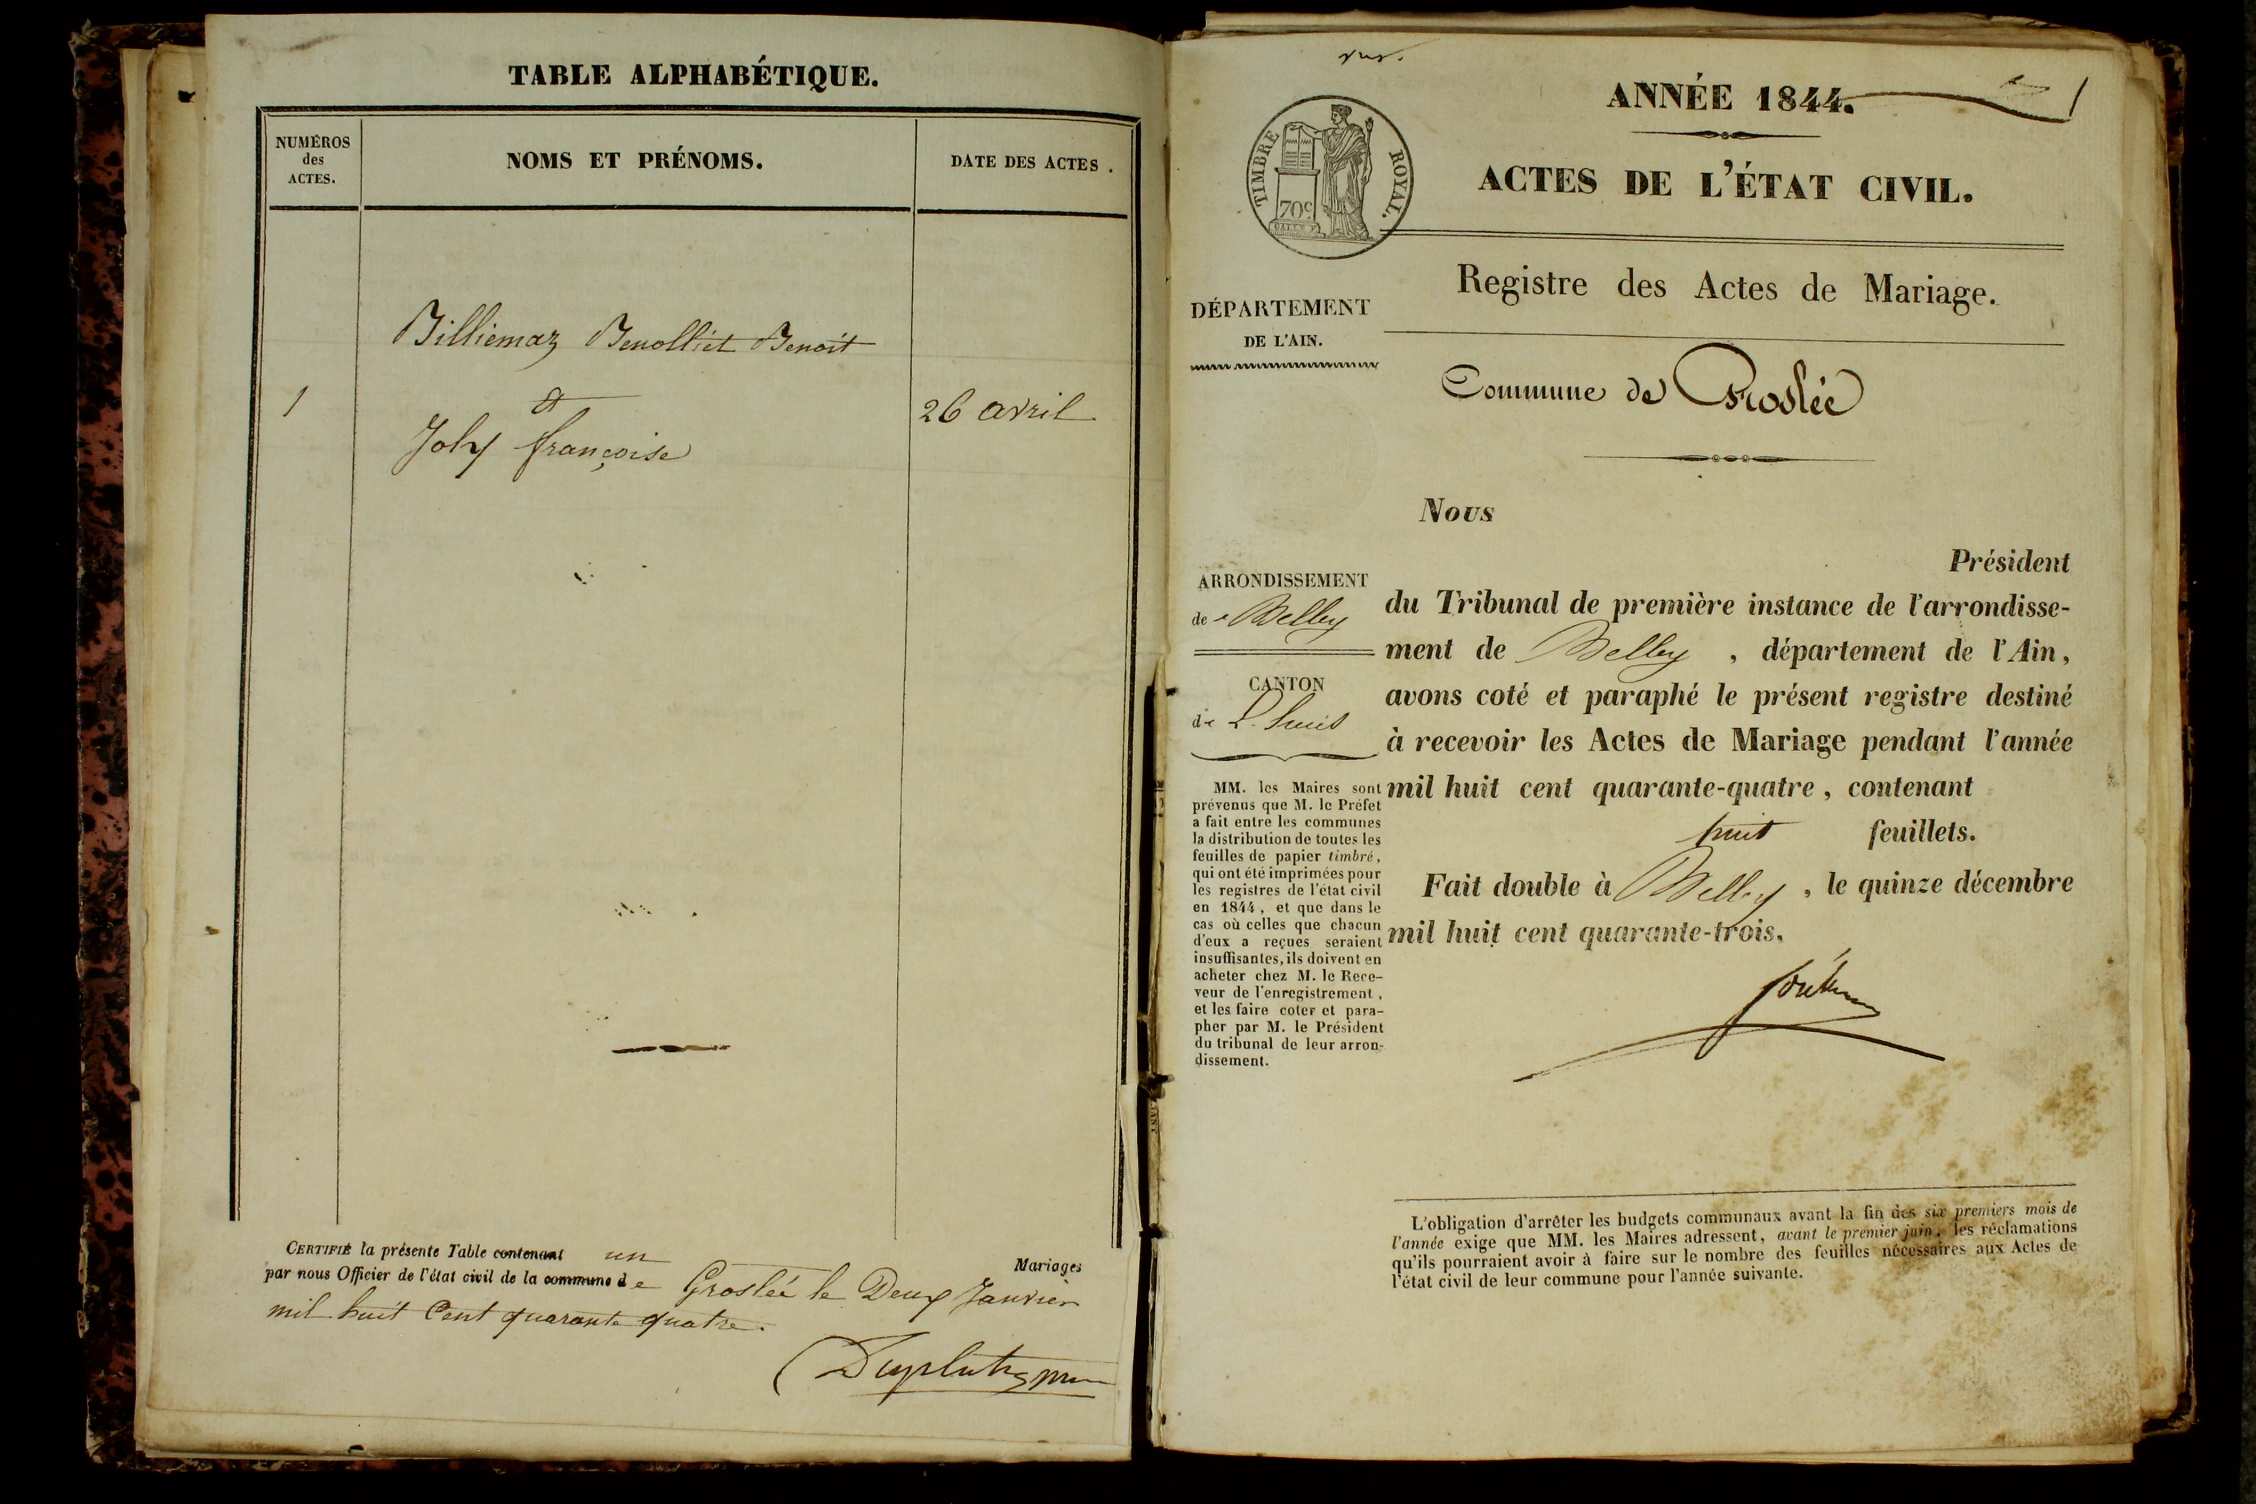 TABLE ALPHABÉTIQUE.
NUMÉROS
des
ACTES.
NOMS ET PRÉNOMS.
DATE DES ACTES.
Billiemaz Benolliet Benoit
1
et
26 avril
Joly françoise
CERTIFIÉ la présente Table contenant un Mariages
par nous Officier de l'état civil de la commune de Groslée le Deux Janvier
mil huit Cent quarante quatre.
ANNÉE 1844.
1
TIMBRE ROYAL.
70c
ACTES DE L'ÉTAT CIVIL.
Registre des Actes de Mariage.
DÉPARTEMENT
DE L'AIN.
Commune de Groslée
Nous
Président
ARRONDISSEMENT
de Belley
CANTON
de L'huis
du Tribunal de première instance de l'arrondisse-
ment de Belley, département de l'Ain,
avons coté et paraphé le présent registre destiné
à recevoir les Actes de Mariage pendant l'année
mil huit cent quarante-quatre, contenant
huit feuillets.
Fait double à Belley, le quinze décembre
mil huit cent quarante-trois.
MM. les Maires sont
prévenus que M. le Préfet
a fait entre les communes
la distribution de toutes les
feuilles de papier timbré,
qui ont été imprimées pour
les registres de l'état civil
en 1844, et que dans le
cas où celles que chacun
d'eux a reçues seraient
insuffisantes, ils doivent en
acheter chez M. le Rece-
veur de l'enregistrement,
et les faire coter et para-
pher par M. le Président
du tribunal de leur arron-
dissement.
L'obligation d'arrêter les budgets communaux avant la fin des six premiers mois de
l'année exige que MM. les Maires adressent, avant le premier juin, les réclamations
qu'ils pourraient avoir à faire sur le nombre des feuilles nécessaires aux Actes de
l'état civil de leur commune pour l'année suivante.